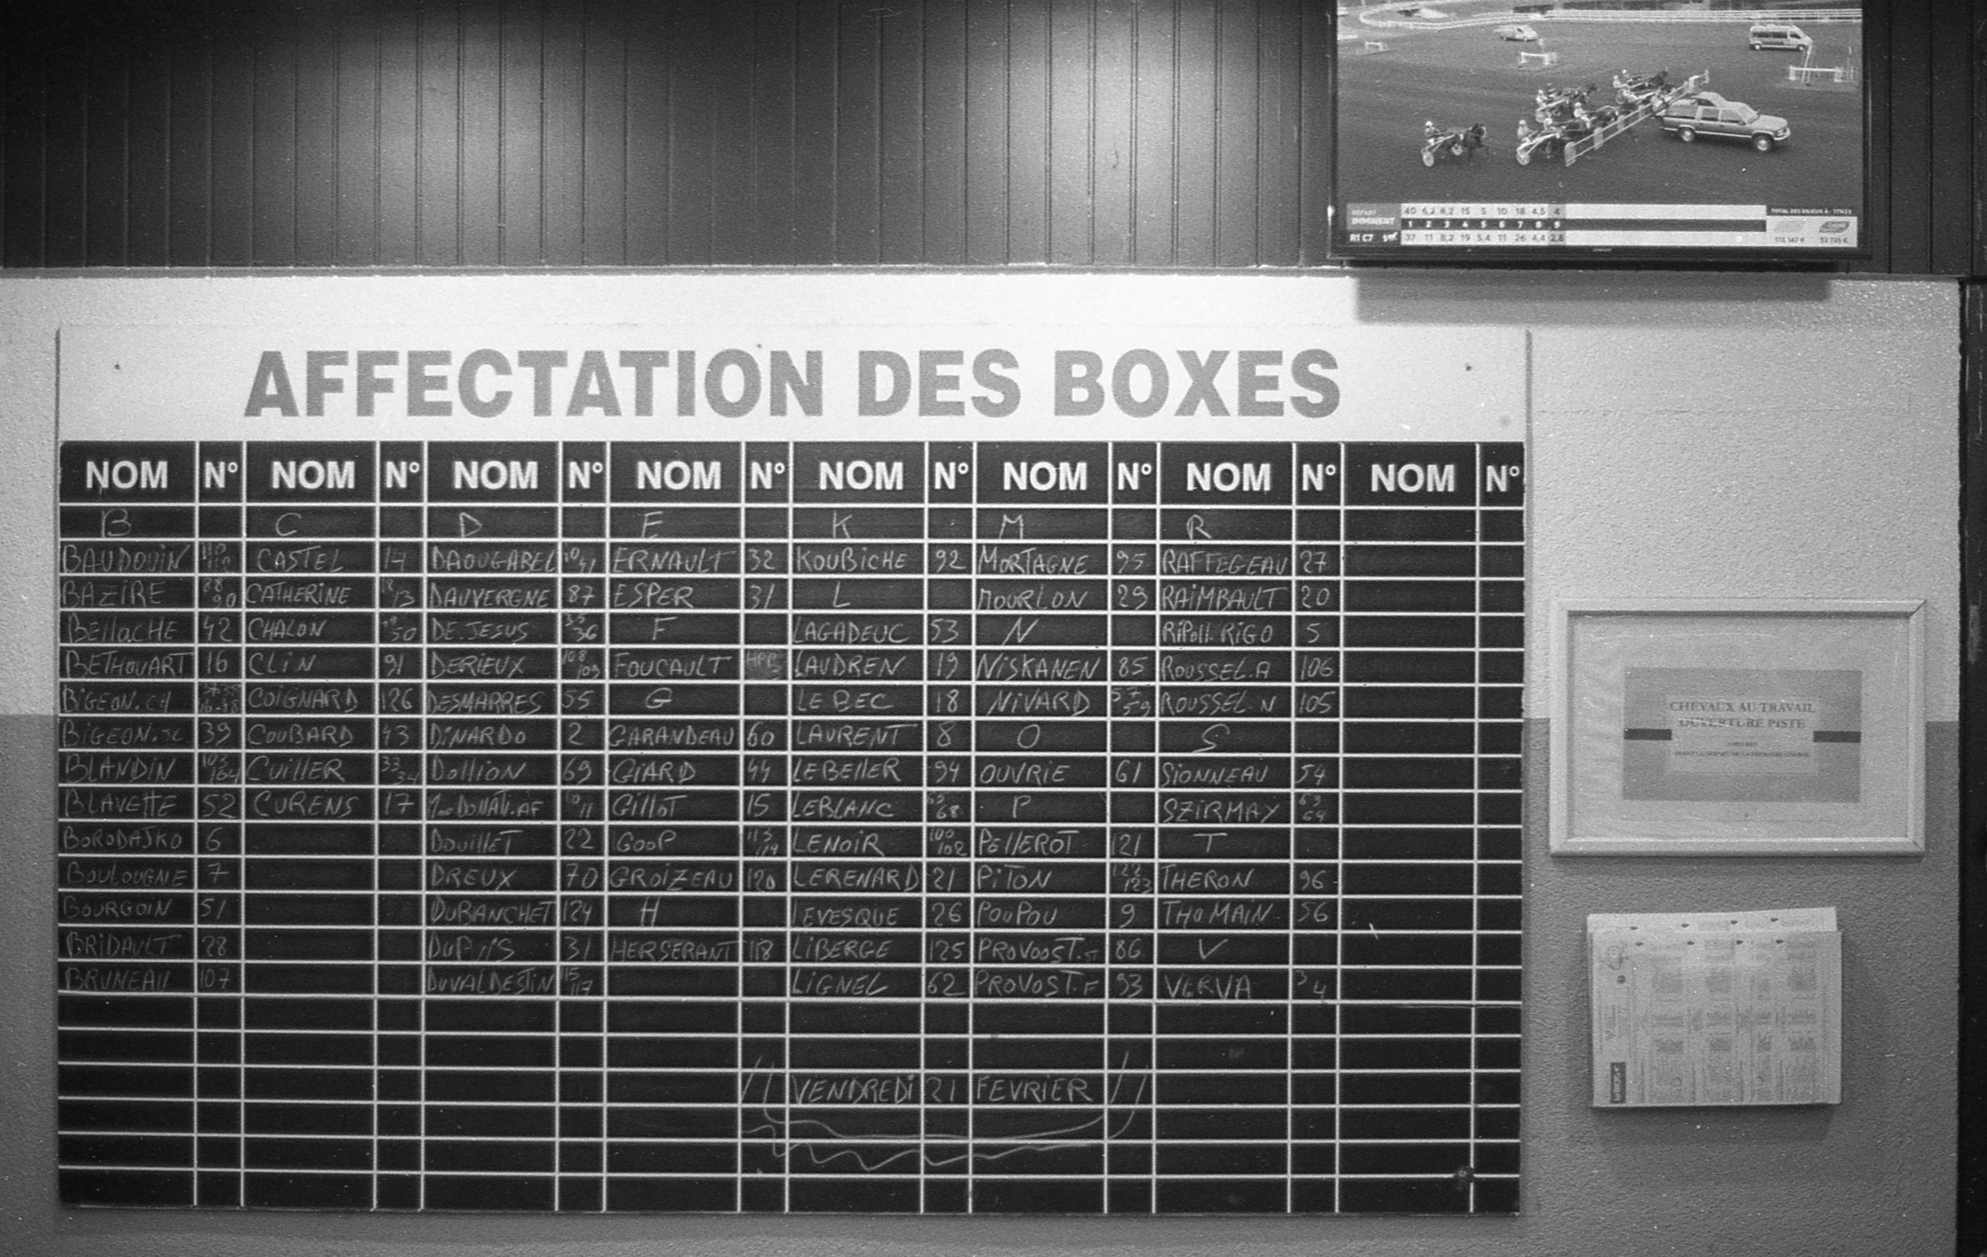 DEPART
IMMINENT
40 6,2 8,2 15 5 10 18 4,5 4
1 2 3 4 5 6 7 8 9
R1 C7 37 11 8,2 19 5,4 11 26 4,4 2,8
TOTAL DES ENJEUX À : 17H23
AFFECTATION DES BOXES
NOM N° NOM N° NOM N° NOM N° NOM N° NOM N° NOM N° NOM N°
B C D E K M R
BAUDOUIN CASTEL 14 DAOUGABEL ERNAULT 32 KOUBICHE 92 MORTAGNE 95 RAFFEGEAU 27
BAZIRE 88 90 CATHERINE 12 13 DAUVERGNE 87 ESPER 31 L MOURLON 29 RAIMBAULT 20
BELLOCHE 42 CHALON 50 DE.JESUS 35 36 F LAGADEUC 53 N RIPOLL.RIGO 5
BETHOUART 16 CLIN 91 DERIEUX 108 109 FOUCAULT LAUDREN 19 NISKANEN 85 ROUSSEL.A 106
BIGEON.CH COIGNARD 126 DESMARRES 55 G LE BEC 18 NIVARD 57 59 ROUSSEL.N 105
BIGEON.JL 39 COUBARD 43 DINARDO 2 GARANDEAU 60 LAURENT 8 O S
BLANDIN 103 104 CUILLER 33 34 DOLLION 69 GIARD 44 LEBELLER 94 OUVRIE 61 SIONNEAU 54
BLAVETTE 52 CURENS 17 DONATI.AF 10 11 GILLOT 15 LEBLANC 65 68 P SZIRMAY 63 64
BORODAJKO 6 DOUILLET 22 GOOP 113 114 LENOIR 100 102 PELLEROT 121 T
BOULOUGNE 7 DREUX 70 GROIZEAU 120 LERENARD 21 PITON 122 123 THERON 96
BOURGOIN 51 DUBANCHET 124 H LEVESQUE 26 POUPOU 9 THOMAIN 56
BRIDAULT 28 DUPUIS 31 HERSERANT 118 LIBERGE 125 PROVOOST. 86 V
BRUNEAU 107 DUVALDESTIN 115 117 LIGNEL 62 PROVOST.F 93 VERVA 3 4
VENDREDI 21 FEVRIER
CHEVAUX AU TRAVAIL
OUVERTURE PISTE